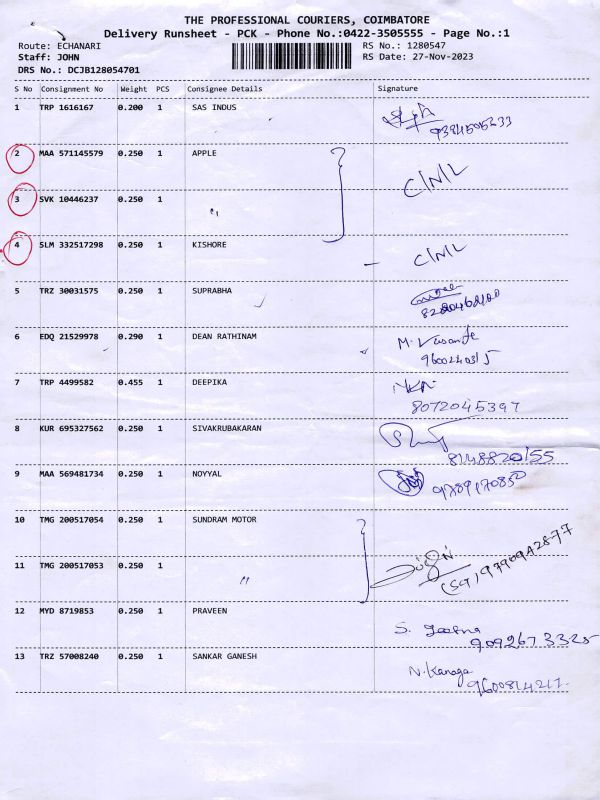 THE PROFESSIONAL COURIERS, COIMBATORE
Delivery Runsheet - PCK - Phone No.:0422-3505555 - Page No.:1
Route: ECHANARI RS No.: 1280547
Staff: JOHN RS Date: 27-Nov-2023
DRS No.: DCJB128054701
S No Consignment No Weight PCS Consignee Details Signature
1 TRP 1616167 0.200 1 SAS INDUS
2 MAA 571145579 0.250 1 APPLE
C/N/L
3 SVK 10446237 0.250 1 "
4 SLM 332517298 0.250 1 KISHORE - C/N/L
5 TRZ 30031575 0.250 1 SUPRABHA
6 EDQ 21529978 0.290 1 DEAN RATHINAM M.
9600240315
7 TRP 4499582 0.455 1 DEEPIKA
8072045397
8 KUR 695327562 0.250 1 SIVAKRUBAKARAN
8148820155
9 MAA 569481734 0.250 1 NOYYAL
9789170850
10 TMG 200517054 0.250 1 SUNDRAM MOTOR
11 TMG 200517053 0.250 1 "
12 MYD 8719853 0.250 1 PRAVEEN S.
9092673325
13 TRZ 57008240 0.250 1 SANKAR GANESH N. Kanaga
9600814217